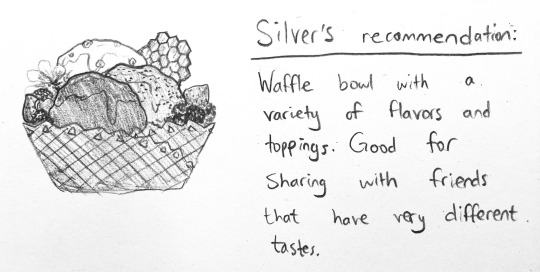 Silver's recommendation:
Waffle bowl with a
variety of flavors and
toppings. Good for
sharing with friends
that have very different
tastes.